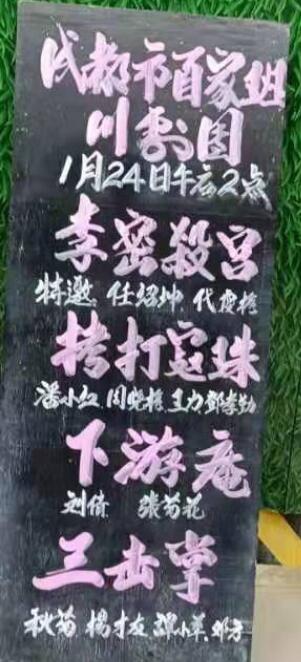 成都市百家班
川剧团
1月24日午后2点
李密殺宫
特邀 任绍坤 代俊
拷打寇珠
潘小红 周晓 王力 郭孝勤
下游庵
刘倩 張菊花
三击掌
秋菊 楊才友 邓方